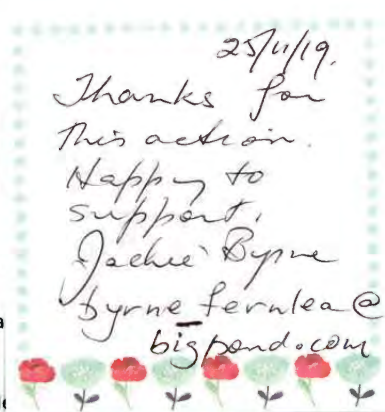 25/11/19.
Thanks for
this action.
Happy to
support.
Jackie Byrne
byrne_fernlea@
bigpond.com
a